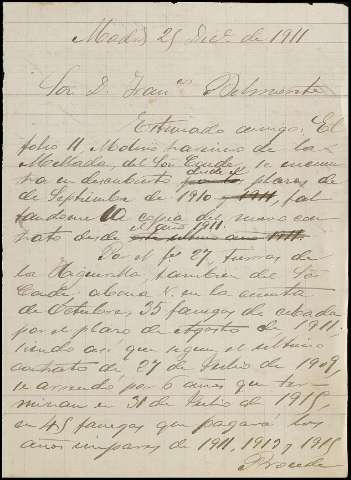 Madrid 25 Dice. de 1911
Sor. D. Franco. Belmonte
Estimado amigo: El
folio 11, Molino harinero de las
Mellada, del Sor. Conde, se encuen
tra en descubierto desde el plazo de
de Septiembre de 1910 y 1911, fal
tandome la copia del nuevo con
trato desde el año 1911.
Por el fo. 27, tierras de
la tambien del Sor.
Conde, abona V. en la cuenta
de Octubre, 35 fanegas de cebada
por el plazo de Agosto de 1911.
siendo asi que segun el ultimo
contrato de 27 de Julio de 1909,
se arrendó por 6 años que ter-
minan en 31 de Julio de 1915,
en 45 fanegas que pagará los
años impares de 1911, 1913 y 1915
Procede